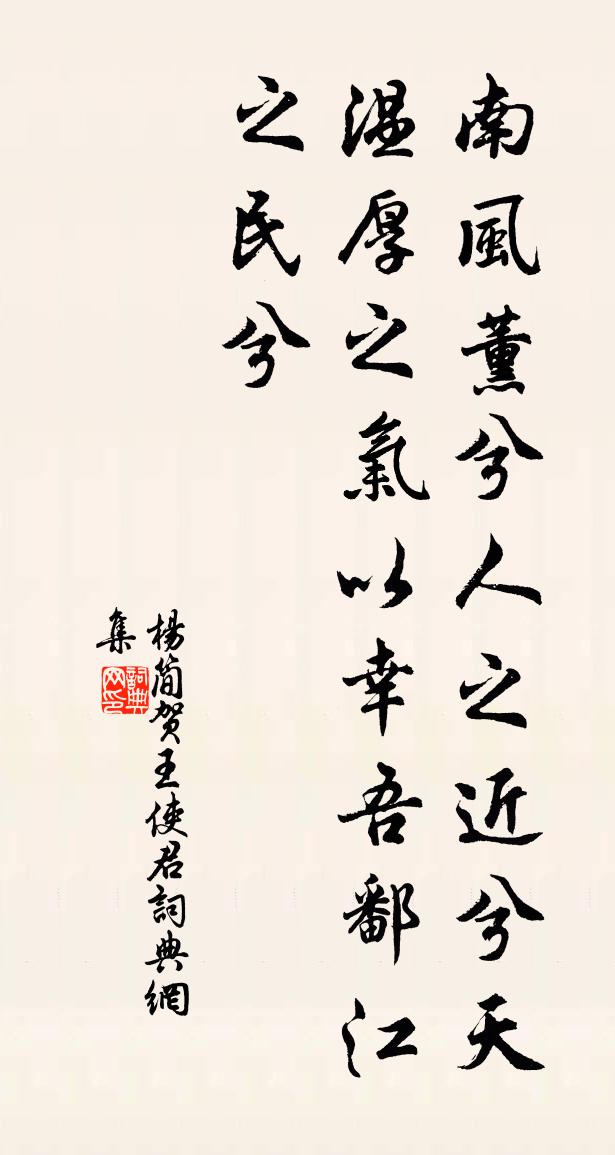 南風薰兮人之近兮天
温厚之氣以幸吾鄱江
之民兮
楊簡賀王使君詞典網
集
詞典网印